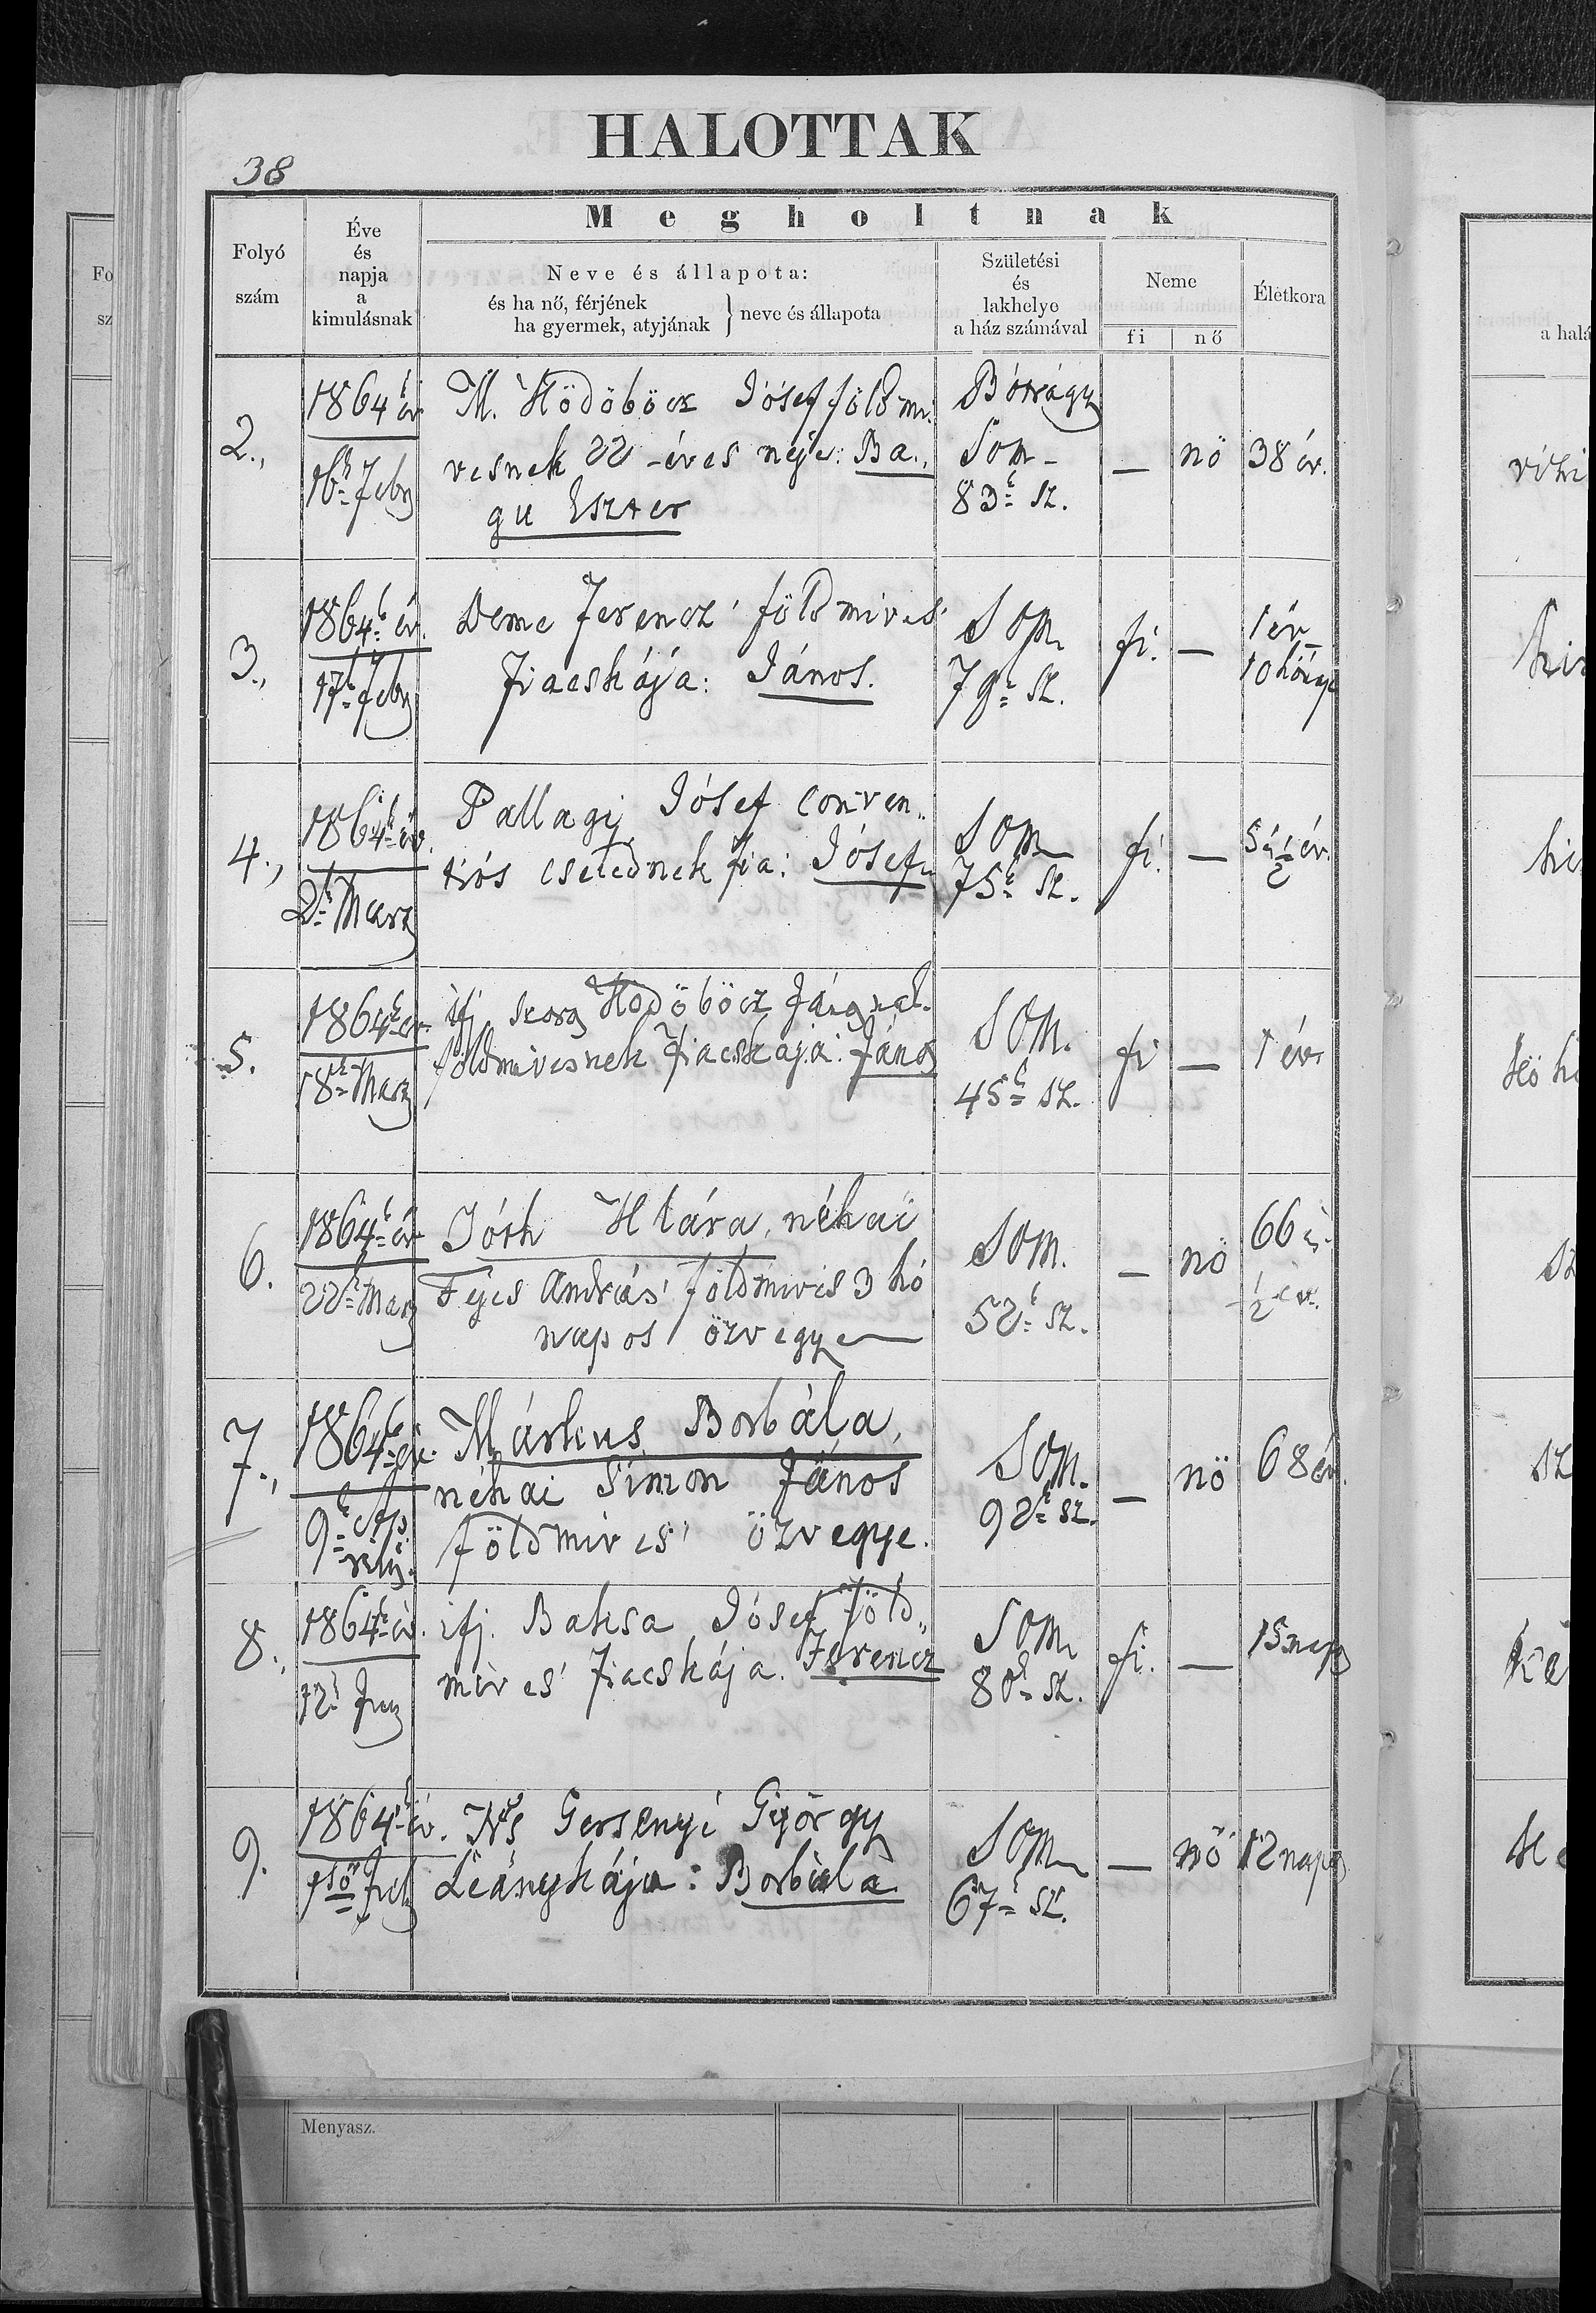 HALOTTAK
38
Megholtnak
Folyó
szám
Éve
és
napja
a
kimulásnak
Neve és állapota:
és ha nő, férjének
ha gyermek, atyjának } neve és állapota
Születési
és
lakhelye
a ház számával
Neme
fi
nő
Életkora
2.,
1864 év
16k Febr
M. Hödöböcz Jósef földmi
vesnek 22 -éves neje: Ba.,
gu Eszter
Som
83k sz.
—
nö
38 év.
3.,
1864k év.
17k Febr
Deme Ferencz földmives
Fiacskája: János.
Som
79k sz.
fi.
—
1 év
10 hónap
4.,
1864k év.
2k Marz
Pallagi Jósef conven„
tiós cselednek fia: Jósef
Som
75k sz.
fi.
—
5 ½ év.
5.
1864k év.
18k Marz
ifj. Hödöböcz
földmivesnek Fiacskája: János
Som.
45k sz.
fi
—
1 év
6.
1864k év
22k Marz
Tóth Klára, néhai
Fejes András földmives 3 hó
napos özvegye
Som.
52k sz.
—
nö
66
½ év.
7.,
1864k év.
9k Ap.
rily.
Márkus Borbála,
néhai Simon János
földmives özvegye.
Som.
92k sz.
—
nö
68 év.
8.,
1864k év.
12k
ifj. Baksa Jósef föld„
mives Fiacskája. Ferencz
Som
80k sz.
fi.
—
15 nap
9.
1864k év.
Ns Gersenyi György
Leánykája: Borbála
Som
67k sz.
—
nö
12 nap
Menyasz.